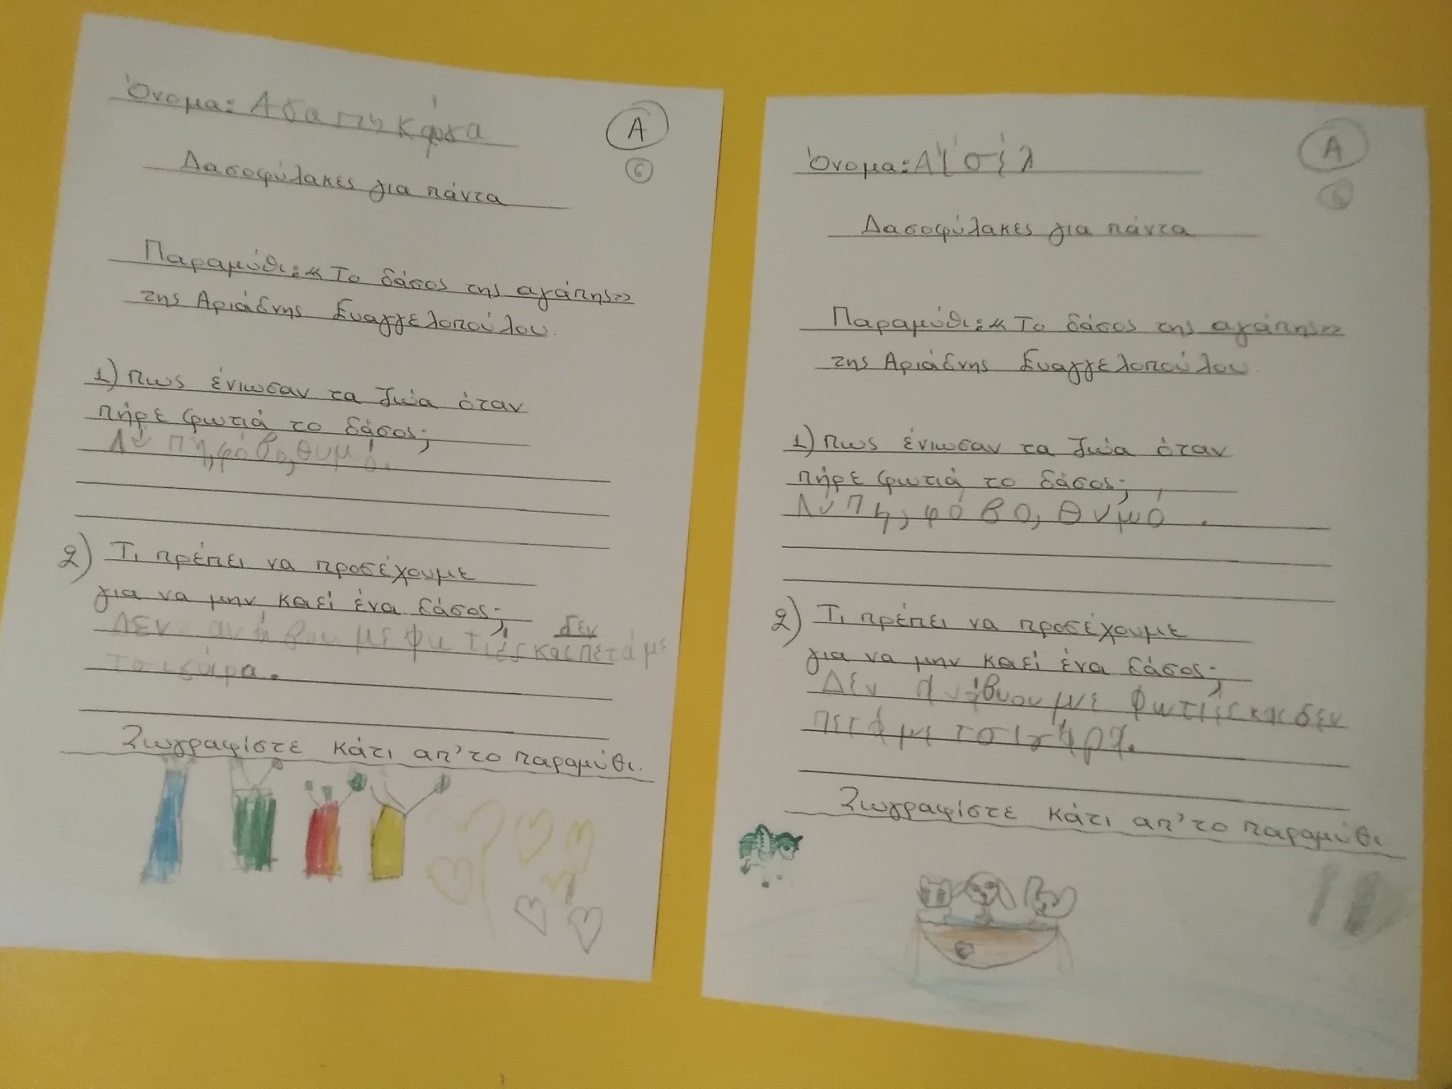 Όνομα:
Α
6
Δασοφύλακες για πάντα
Παραμύθι: «Το δάσος της αγάπης»
της Αριάδνης Ευαγγελοπούλου.
1) Πως ένιωσαν τα ζώα όταν
πήρε φωτιά το δάσος;
Λύπη, φόβο, θυμό.
2) Τι πρέπει να προσέχουμε
για να μην καεί ένα δάσος;
δεν
Δεν ανάβουμε φωτιές και πετάμε
τσιγάρα.
Ζωγραφίστε κάτι απ' το παραμύθι.
Όνομα: Αϊσέλ
Α
6
Δασοφύλακες για πάντα
Παραμύθι: «Το δάσος της αγάπης»
της Αριάδνης Ευαγγελοπούλου.
1) Πως ένιωσαν τα ζώα όταν
πήρε φωτιά το δάσος;
Λύπη, φόβο, θυμό.
2) Τι πρέπει να προσέχουμε
για να μην καεί ένα δάσος;
Δεν ανάβουουμε φωτιές και δεν
πετάμε τσιγάρα.
Ζωγραφίστε κάτι απ' το παραμύθι